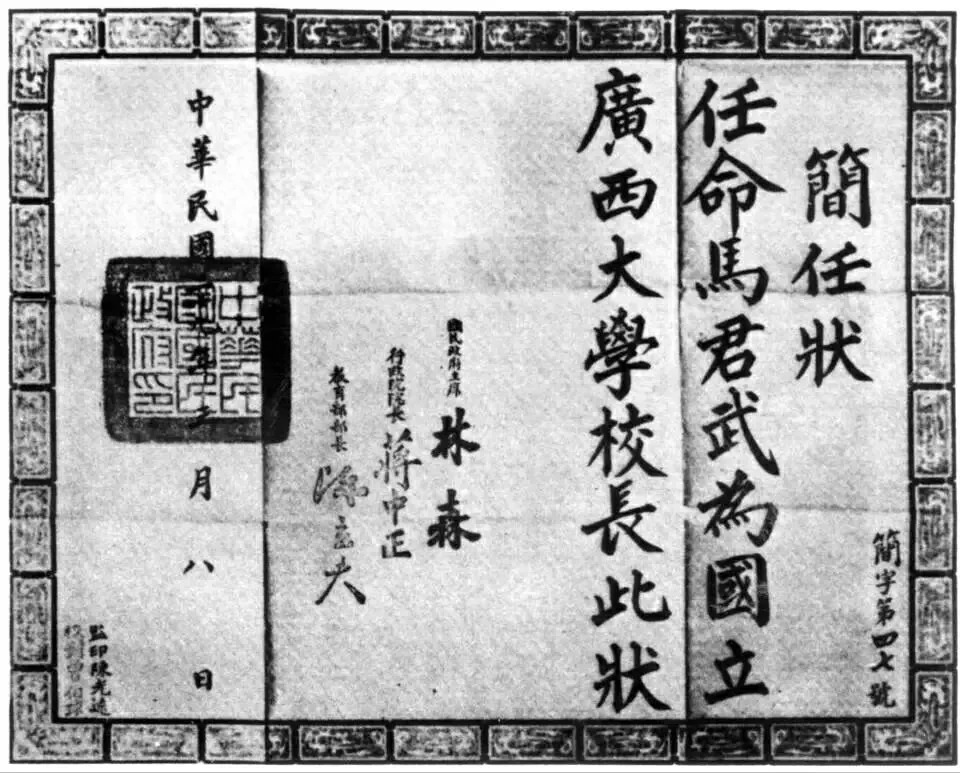 簡字第四七號
簡任狀
任命馬君武為國立
廣西大學校長此狀
國民政府主席 林森
行政院院長 蔣中正
教育部部長 陳立夫
中華民國 年 月八日
中華民
國國民
政府印
監印陳光遠
校對曾伯